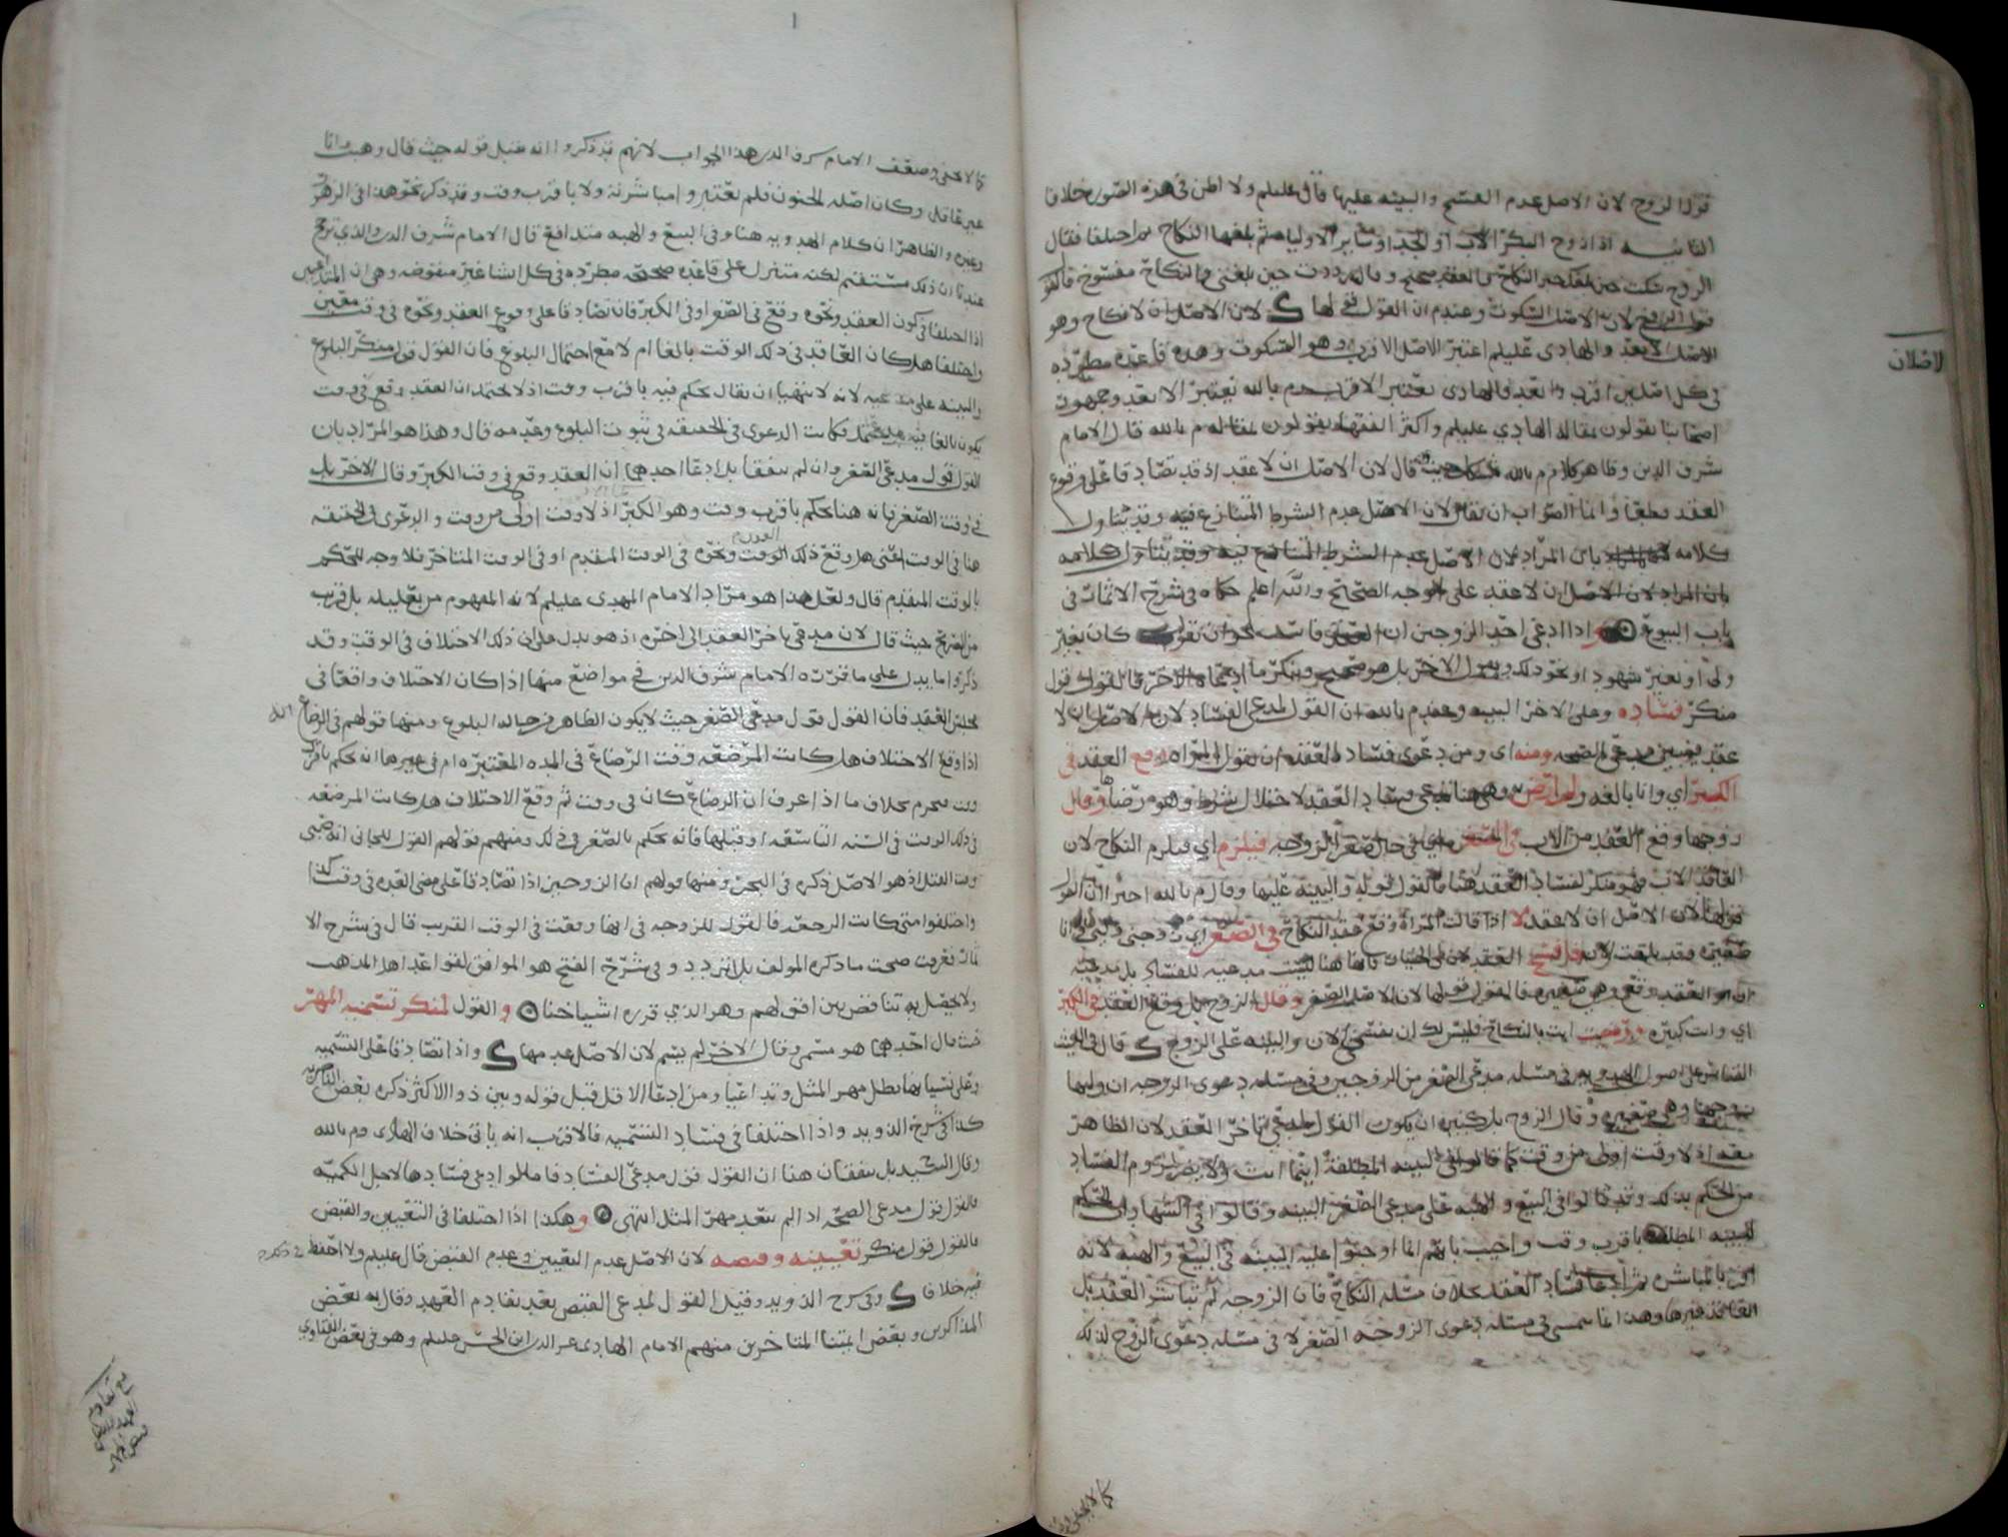 قول الزوج لان الاصل عدم الفسخ والبينه عليها قال عليلم ولا اظن في هذه الصور خلافا
اذا زوج البكر الاب او الجد او سائر الاولياء ثم بلغها النكاح ثم اختلفا فقال
الزوج سكت حين بلغك خبر النكاح العقد صحيح وقالت رددت حين بلغني فالنكاح مفسوخ
لان الاصل السكوت وعند م ان القول قولها ك لان الاصل ان لا نكاح وهو
الاصل الابعد والهادي عليلم اعتبر الاصل الاقرب وهو السكوت وهذه قاعده مطرده
في كل اصلين اقرب وابعد فالهادي يعتبر الاقرب وم بالله يعتبر الابعد وجمهور
اصحابنا يقولون بمقالة الهادي عليلم واكثر الفقهاء يقولون بمقاله م بالله قال الامام
شرف الدين وظاهر كلام م بالله حيث قال لان الاصل ان لا عقد اذ قد تصادقا على وقوع
العقد مطلقا وانما الصواب ان يقال لان الاصل عدم الشرط المتنازع فيه وقد يتناول
كلامه بان المراد لان الاصل عدم الشرط المتنازع فيه وقد يتناول كلامه
بان المراد لان الاصل ان لا عقد على الوجه الصحيح والله اعلم حكاه في شرح الاثمار في
باب البيوع واذا ادعى احد الزوجين ان العقد فاسد نحو ان يقول كان بغير
ولي او بغير شهود او نحو ذلك ويقول الاخر بل هو صحيح وينكر ما ادعاه الاخر فالقول قول
منكر فساده وعلى الاخر البينه وعند م بالله ان القول لمدعي الفساد لان الاصل ان لا
عقد بيمين مدعي الصحه ومنه اي ومن دعوى فساد العقد ان تقول المراه وقع العقد في
الكبر اي وانا بالغه ولم ارض به لاختلال شرط وهو رضاها وقال
زوجها وقع العقد من الاب في الصغر اي في حال صغر الزوجه فيلزم اي فيلزم النكاح لان
العاقد الاب فهو منكر لفساد العقد هنا فالقول قوله والبينه عليها وقال م بالله اخيرا ان القول
قولها لان الاصل ان لا عقد لا اذا قالت المراة وقع عقد النكاح في الصغر اي زوجني وليي وانا
صغيره فقد بلغت
العقد وقع وهي صغيره فالقول قولها لان الاصل الصغر وقال الزوج بل وقع العقد في الكبر
اي وانت كبيره ورضيت انت بالنكاح فليس لك ان تفسخي الان والبينه على الزوج ك قال في الغيث
القياس على اصول في مسله مدعي الصغر من الزوجين وفي مسله دعوى الزوجه ان وليها
زوجها وهي صغيره وقال الزوج بل كبيره ان يكون القول لمدعي تاخر العقد لان الظاهر
معه اذ لا وقت اولى من وقت كما قالوا في البينه المطلقة
من الحكم بذلك وقد قالوا في البيع والهبه على مدعي الصغر البينه وقالوا في الشهادات الحكم
للبينه المطلقه باقرب وقت واجيب بانهم انما اوجبوا عليه البينه في البيع والهبه لانه
اقر بالمباشره ثم ادعا فساد العقد بخلاف مسله النكاح فان الزوجه لم تباشر العقد بل
العاقد غيرها وهذا انما يتمشى في مسله دعوى الزوجه الصغر لا في مسله دعوى الزوج لذلك
لاصلان
كما لا يخفى
كما لا يخفى وضعف الامام شرف الدين هذا الجواب لانهم قد ذكروا انه يقبل قوله حيث قال وهبت وانا
غير عاقل وكان اصله الجنون فلم يعتبروا مباشرته ولا باقرب وقت وقد ذكر نحو هذا في الزهر
وغيره والظاهر ان كلام اهل المذهب هنا وفي البيع والهبه متدافع قال الامام شرف الدين والذي ترجح
عندنا ان ذلك مستقيم لكنه متنزل على قاعده صحيحه مطرده في كل انشا غير منقوضه وهي ان المتداعيين
اذا اختلفا في كون العقد ونحوه وقع في الصغر او في الكبر فان تصادقا على وقوع العقد ونحوه في وقت معين
واختلفا هل كان العاقد في ذلك الوقت بالغا ام لا مع احتمال البلوغ فان القول قول منكر البلوغ
والبينه على مدعيه لانه لا يتهيا ان يقال يحكم فيه باقرب وقت اذ لا يحتمل ان العقد وقع في وقت
يكون بالغا فيه فكانت الدعوى في الحقيقه في ثبوت البلوغ وعدمه قال وهذا هو المراد بان
القول قول مدعي الصغر وان لم يتفقا بل ادعا احدهما ان العقد وقع في وقت الكبر وقال الاخر بل
في وقت الصغر فانه هنا يحكم باقرب وقت وهو الكبر اذ لا وقت اولى من وقت والدعوى في الحقيقه
هنا في الوقت اعني هل وقع ذلك العقد ونحوه في الوقت المتقدم او في الوقت المتاخر فلا وجه للحكم
بالوقت المتقدم قال ولعل هذا هو مراد الامام المهدي عليلم لانه المفهوم من تعليله بل قريب
من الصريح حيث قال لان مدعي تاخر العقد الى اخره اذ هو يدل على ان ذلك الاختلاف في الوقت وقد
ذكروا ما يدل على ما قرره الامام شرف الدين في مواضع منها اذا كان الاختلاف واقعا في
مجلس العقد فان القول قول مدعي الصغر حيث لا يكون الظاهر من حاله البلوغ ومنها قولهم في الرضاع انه
اذا وقع الاختلاف هل كانت المرضعه وقت الرضاع في المده المعتبره ام في غيرها انه يحكم باقرب
وقت فيحرم بخلاف ما اذا عرف ان الرضاع كان في وقت ثم وقع الاختلاف هل كانت المرضعه
في ذلك الوقت في السنه التاسعه او قبلها فانه يحكم بالصغر في ذلك ومنهم قولهم القول للجاني انه صبي
وقت القتل اذ هو الاصل ذكره في البحر ومنها قولهم ان الزوجين اذا تصادقا على مضي العده في وقت كذا
واختلفوا متى كانت الرجعه فالقول للزوجه في انها وقعت في الوقت القريب قال في شرح الا
ثمار فعرفت صحت ما ذكره المولف بلا تردد وفي شرح الفتح هو الموافق لقواعد اهل المذهب
ولا يحصل به تناقض بين اقوالهم وهو الذي قرره اشياخنا والقول لمنكر تسميه المهر
حيث قال احدهما هو مسمى وقال الاخر لم يسم لان الاصل عدمها ك واذا تصادقا على التسميه
وعلى نسيانها بطل مهر المثل وتداعيا ومن ادعا الاقل قبل قوله وبين ذو الاكثر ذكره بعض الناصريه
كذا في شرح الذويد واذا اختلفا في فساد التسميه فالاقرب انه ياتي خلاف الهادي وم بالله
وقال السيد بل يتفقان هنا ان القول قول مدعي الفساد فاما لو ادعى فسادها لاجل الكميه
فالقول قول مدعي الصحه اذا لم يتعد مهر المثل انتهى وهكذا اذا اختلفا في التعيين والقبض
فالقول قول منكر تعيينه وقبضه لان الاصل عدم التعيين وعدم القبض قال عليلم ولا احفظ في ذلك
فيه خلاف ك وفي شرح الذويد وقيل القول لمدعي القبض بعد تقادم العهد وقال به بعض
المذاكرين وبعض ايمتنا المتاخرين منهم الامام الهادي عز الدين ابن الحسن عليلم وهو في بعض الفتاوي
مع تقادم